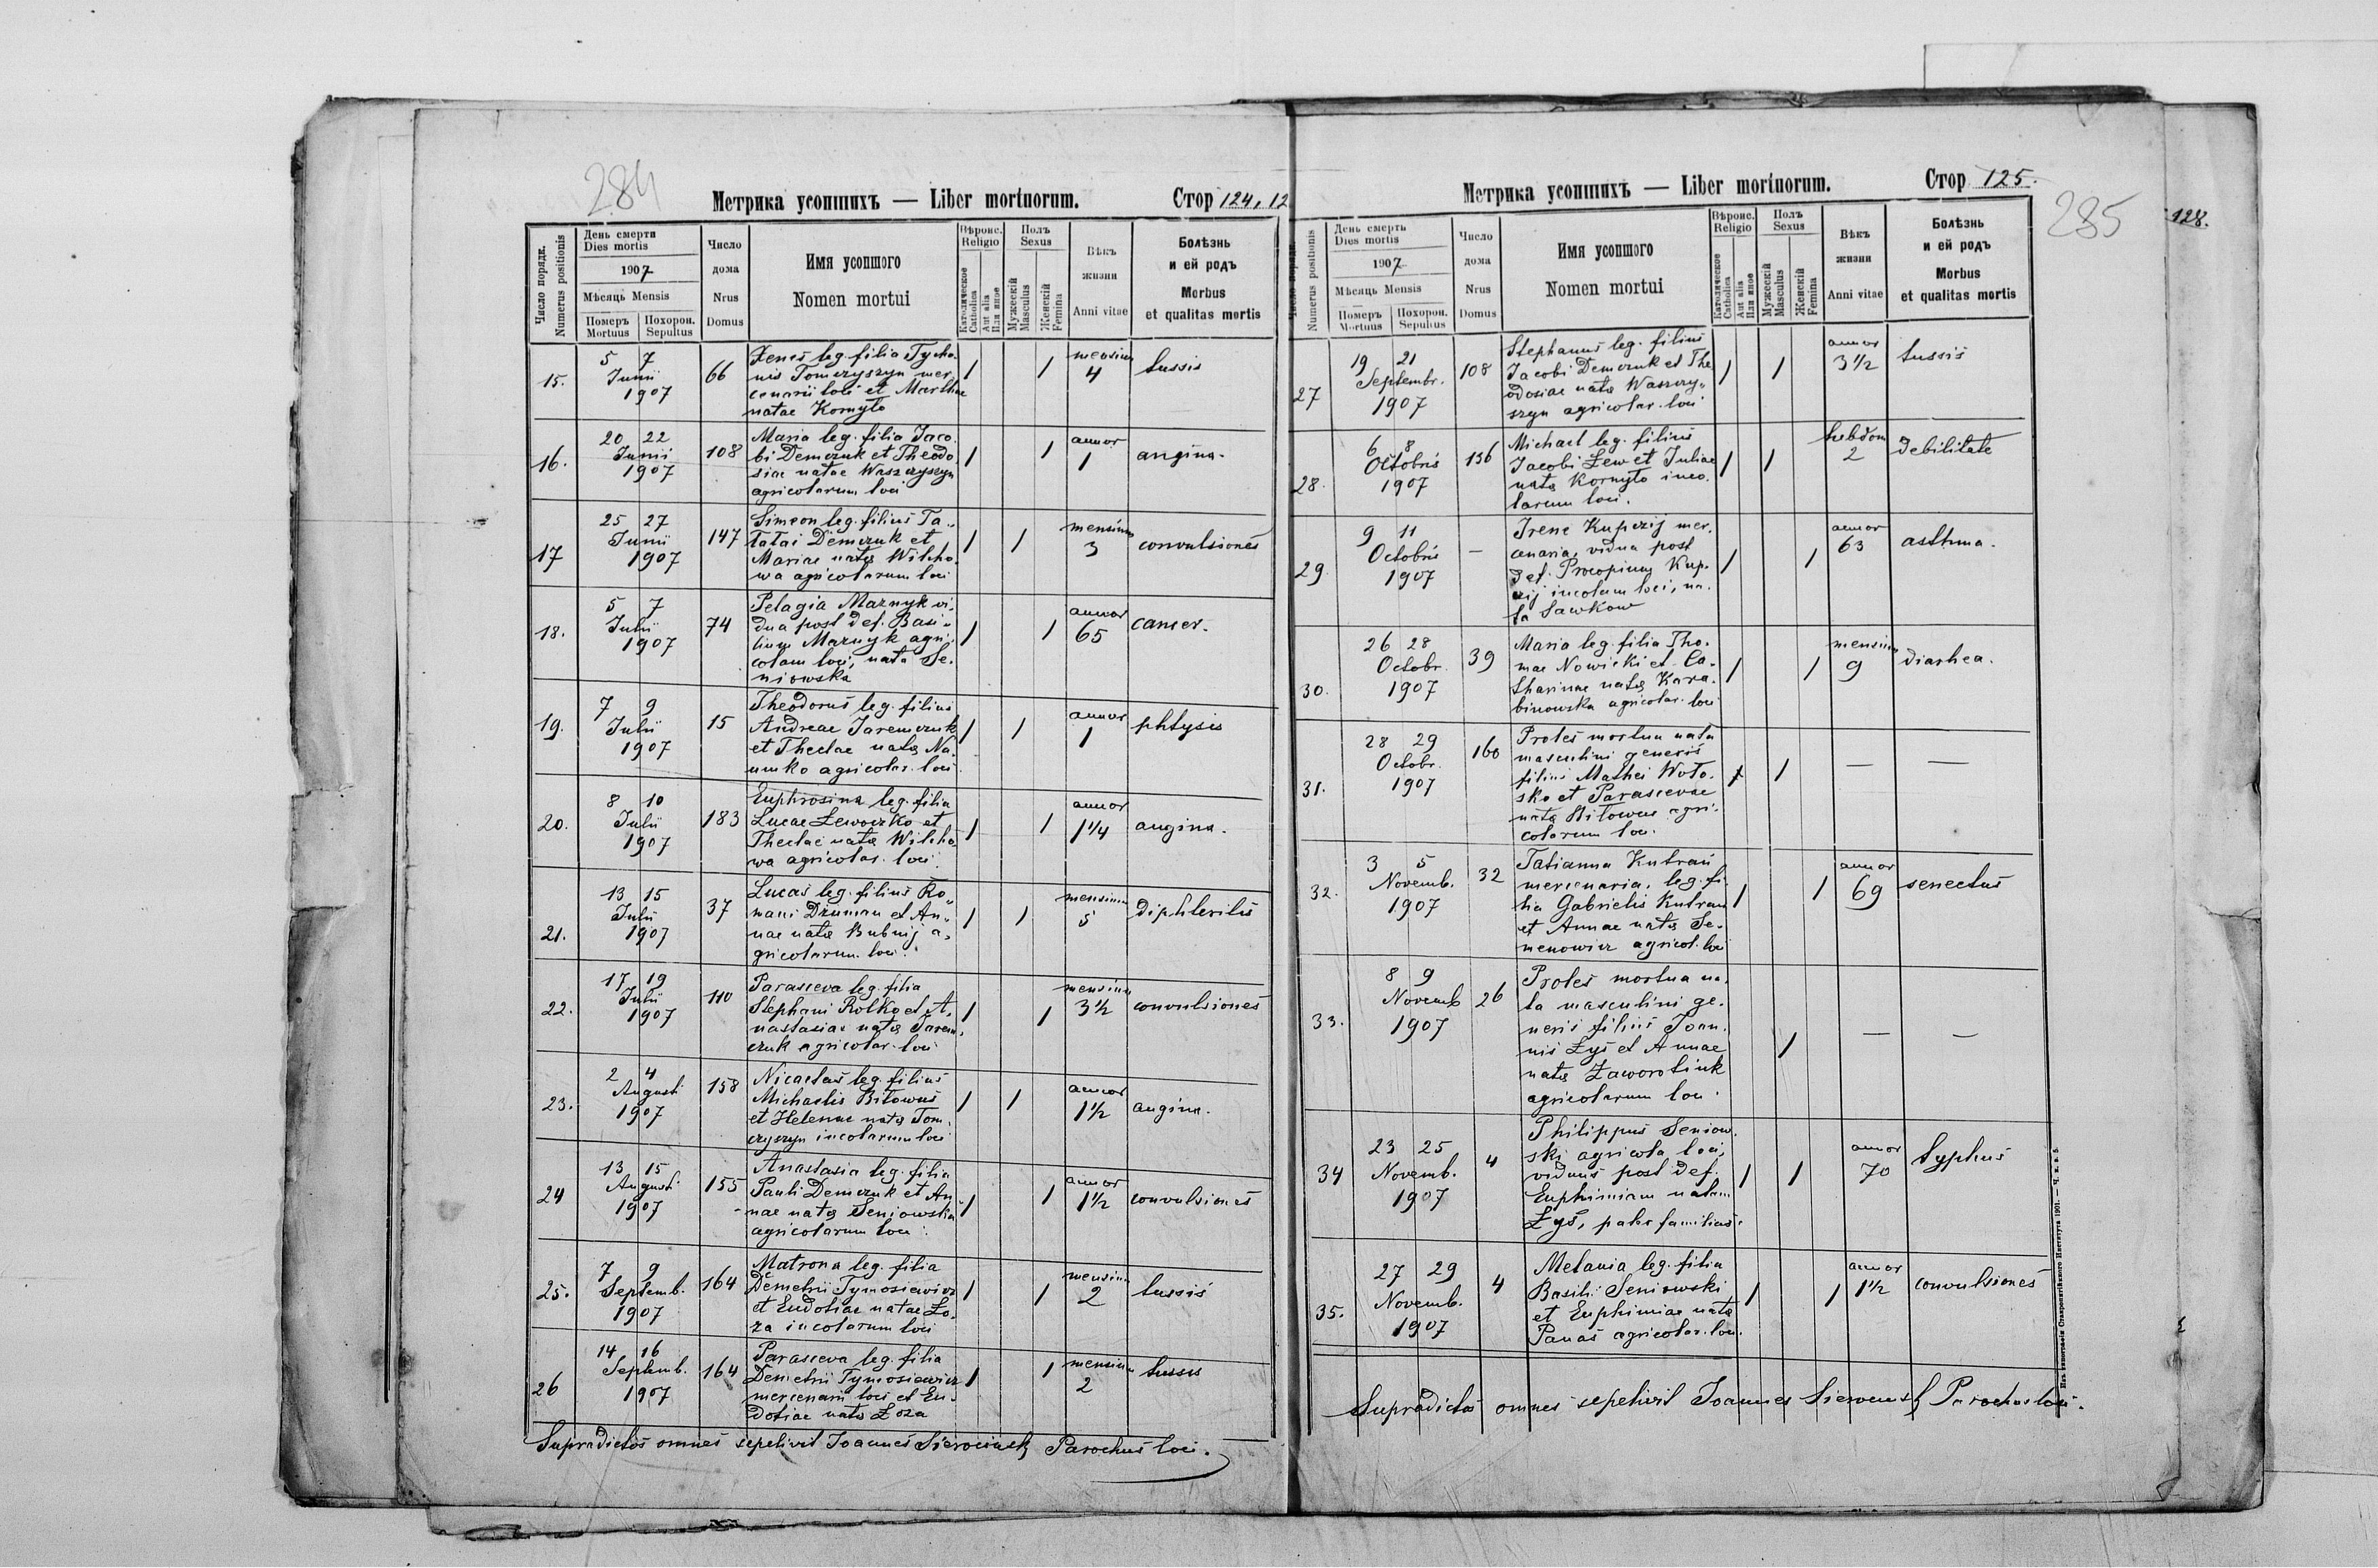 284
Метрика усопшихъ — Liber mortuorum.
Стор 124, 12
Число порядк. Numerus positionis
День смерти Dies mortis
1907
Мѣсяць Mensis
Померъ Mortuus
Похорон. Sepultus
Число дома Nrus Domus
Имя усопшого
Nomen mortui
Вѣроис. Religio
Католическое Catholica
Aut alia Или иное
Полъ Sexus
Мужескій Masculus
Женскій Femina
Вѣкъ жизни
Anni vitae
Болѣзнь и ей родъ
Morbus et qualitas mortis
15. 5 7 Junii 1907 66
Xenes leg. filia Tycho-
nis Tomczyszyn mer-
cenarii loci et Marthae
natae Kornyło
1 1 mensium 4 tussis
16. 20 22 Junii 1907 108
Maria leg. filia Jaco-
bi Demczuk et Theodo-
siae natae Waszczyszyn
agricolarum loci
1 1 annor 1 angina.
17 25 27 Junii 1907 147
Simeon leg. filius Ta-
latai Demczuk et
Mariae natæ Wilcho-
wa agricolarum loci
1 1 mensium 3 convulsiones
18. 5 7 Julii 1907 74
Pelagia Maznyk vi-
dua post def. Basi-
lium Maznyk agri-
colam loci, nata Se-
niowska
1 1 annor 65 cancer.
19. 7 9 Julii 1907 15
Theodorus leg. filius
Andreae Jaremczuk
et Theclae natæ Na-
umko agricolar. loci
1 1 annor 1 phtysis
20. 8 10 Julii 1907 183
Euphrosina leg. filia
Lucae Lewoczko et
Theclae natæ Wilcho-
wa agricolar. loci.
1 1 annor 1 1/4 angina.
21. 13 15 Julii 1907 37
Lucas leg. filius Ro-
mani Dziuman et An-
nae natæ Bubnij a-
gricolarum loci.
1 1 mensium 5 diphteritis
22. 17 19 Julii 1907 110
Parasceva leg. filia
Stephani Rolko et A-
nastasiae natæ Jarem-
czuk agricolar. loci
1 1 mensium 3 1/2 convulsiones
23. 2 4 Augusti 1907 158
Nicaetas leg. filius
Michaelis Biłowus
et Helenae natæ Tom-
czyszyn incolarum loci
1 1 annor 1 1/2 angina.
24 13 15 Augusti 1907 155
Anastasia leg. filia
Pauli Demczuk et An-
nae natæ Seniowska
agricolarum loci.
1 1 annor 1 1/2 convulsiones
25. 7 9 Septemb. 1907 164
Matrona leg. filia
Demetrii Tymosiewicz
et Eudoxiae natae Ło-
za incolarum loci
1 1 mensium 2 tussis
26 14 16 Septemb. 1907 164
Parasceva leg. filia
Demetrii Tymosiewicz
mercenarii loci et Eu-
dotiae natæ Łoza
1 1 mensium 2 tussis
Supradictos omnes sepelivit Joannes Sierociński Parochus loci.
Метрика усопшихъ — Liber mortuorum.
Стор 125.
285
128.
Numerus positionis
День смерть Dies mortis
1907
Мѣсяць Mensis
Померъ Mortuus
Похорон. Sepultus
Число дома Nrus Domus
Имя усопшого
Nomen mortui
Вѣроис. Religio
Католическое Catholica
Aut alia Или иное
Полъ Sexus
Мужескій Masculus
Женскій Femina
Вѣкъ жизни
Anni vitae
Болѣзнь и ей родъ
Morbus et qualitas mortis
27 19 21 Septembr. 1907 108
Stephanus leg. filius
Jacobi Demczuk et The-
odosiae natæ Waszczy-
szyn agricolar. loci
1 1 annor 3 1/2 tussis
28. 6 8 Octobris 1907 136
Michael leg. filius
Jacobi Lew et Juliae
natæ Kornyło inco-
larum loci.
1 1 hebdom 2 debilitate
29. 9 11 Octobris 1907 —
Irene Kupczij mer-
cenaria, vidua post
def. Procopium Kup-
czij incolam loci, na-
ta Sawkow
1 1 annor 63 asthma.
30. 26 28 Octobr. 1907 39
Maria leg. filia Tho-
mae Nowicki et Ca-
tharinae natæ Kara-
binowska agricolar. loci
1 1 mensium 9 diarhea.
31. 28 29 Octobr. 1907 160
Proles mortua nata
masculini generis
filius Mathei Woło-
sko et Parascevae
natæ Bitowus agri-
colarum loci.
1 1 — —
32. 3 5 Novemb. 1907 32
Tatianna Kutran
mercenaria, leg. fi-
lia Gabrielis Kutran
et Annae natæ Se-
menowicz agricol. loci
1 1 annor 69 senectus
33. 8 9 Novemb 1907 26
Proles mortua na-
ta masculini ge-
neris filius Joan-
nis Łyś et Annae
natæ Zaworotiuk
agricolarum loci.
1 — —
34 23 25 Novemb. 1907 4
Philippus Seniow-
ski agricola loci,
viduus post def.
Euphimiam natam
Łyś, pater familias.
1 1 annor 70 typhus
35. 27 29 Novemb. 1907 4
Melania leg. filia
Basilii Seniowski
et Euphimiae natæ
Panas agricolar. loci.
1 1 annor 1 1/2 convulsiones
Supradictos omnes sepelivit Joannes Sierociński Parochus loci.
Изъ книгопечатни Ставропигійского Института 1901. — Ч. к. в. 5.